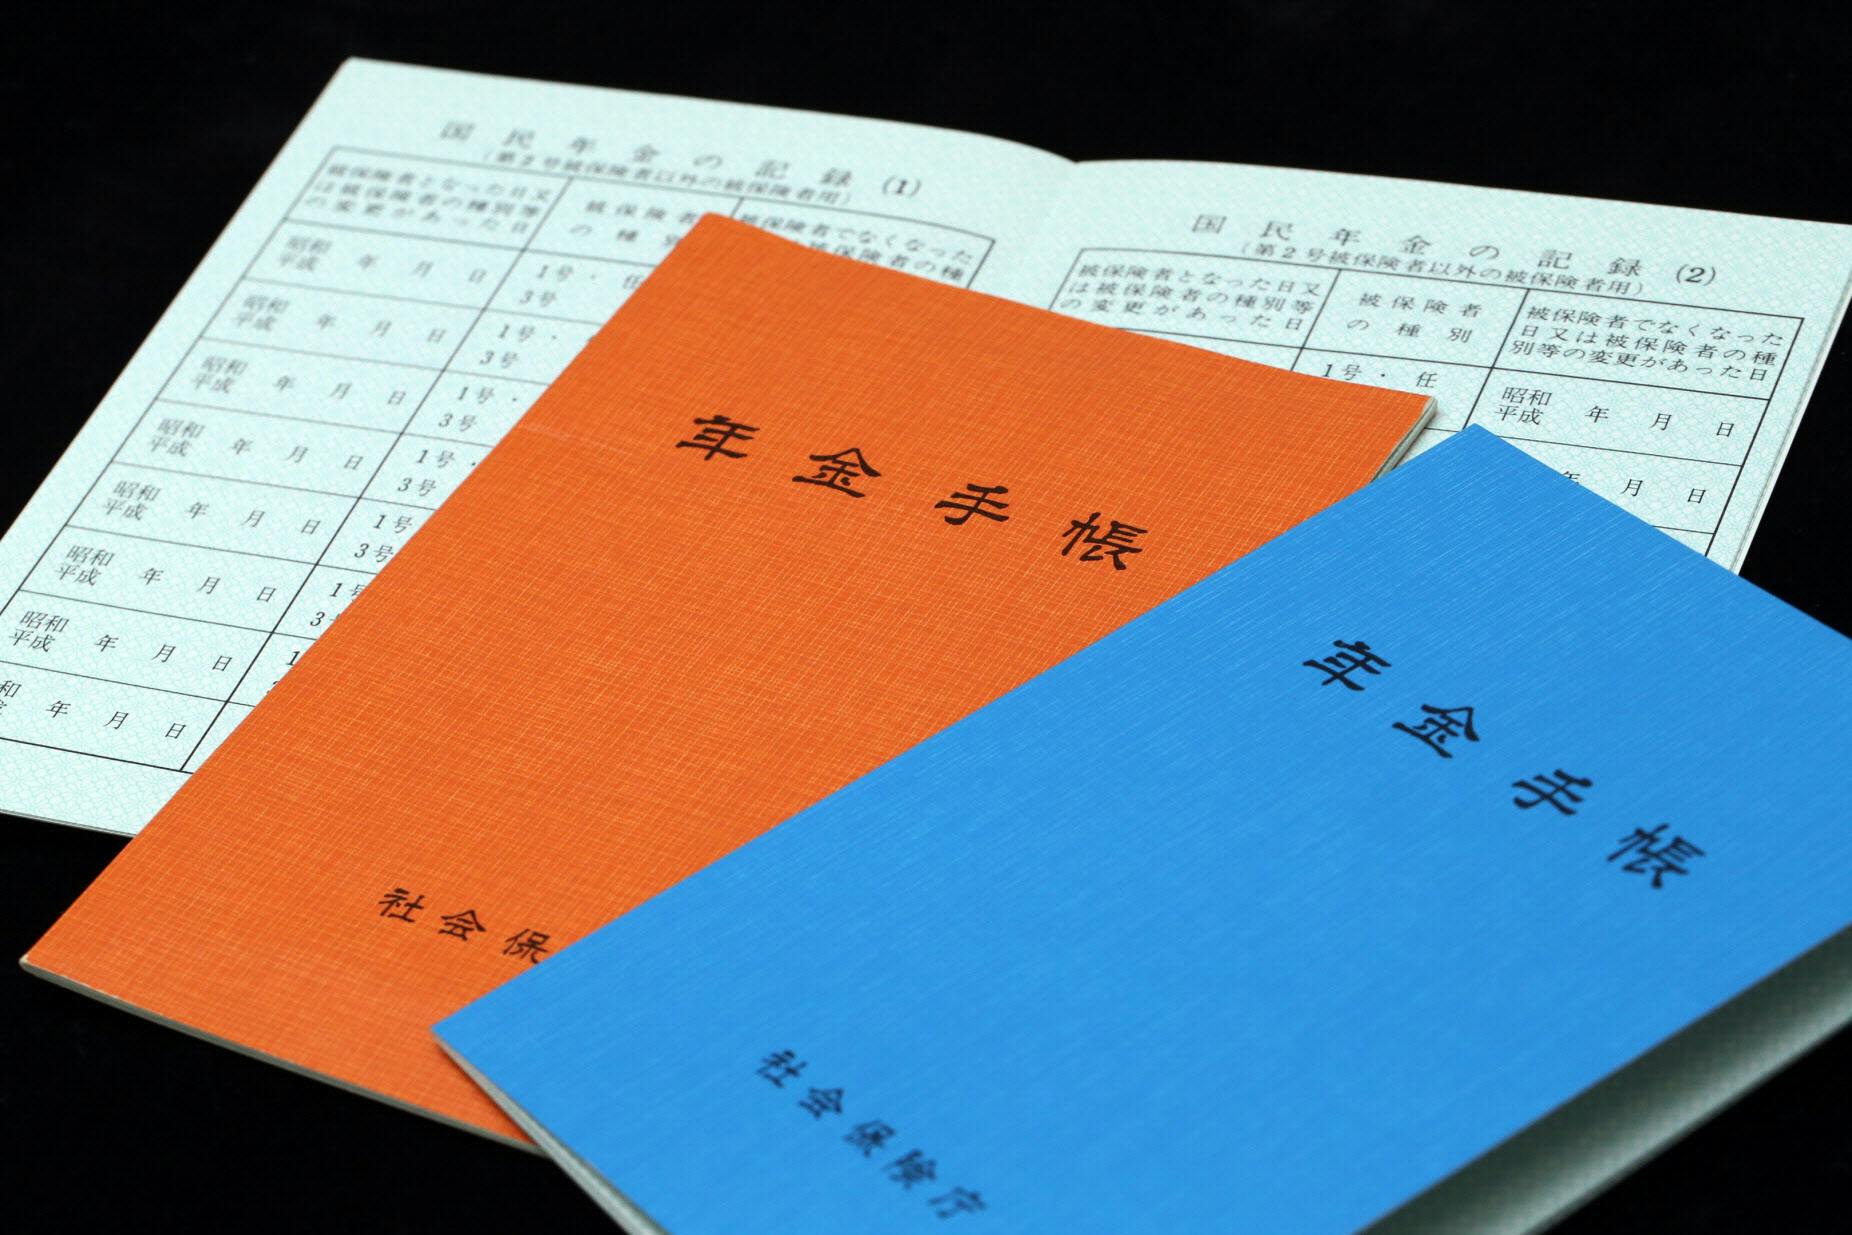 国民年金の記録(1)
(第2号被保険者以外の被保険者用)
被保険者となった日又
は被保険者の種別等
の変更があった日
被保険者
の種別
被保険者でなくなった
被保険者の種
昭和
平成 年 月 日
1号・任
3号
昭和
平成 年 月 日
1号・
3号
昭和
平成 年 月 日
1号・
3号
昭和
平成 年 月 日
1号・
3号
昭和
平成 年 月 日
1号
3号
昭和
平成 年 月 日
1号
3
昭和
平成 年 月 日
1
和
年 月 日
国民年金の記録(2)
(第2号被保険者以外の被保険者用)
被保険者となった日又
は被保険者の種別等
の変更があった日
被保険者
の種別
被保険者でなくなった
日又は被保険者の種
別等の変更があった日
1号・任
昭和
平成 年 月 日
年 月 日
年金手帳
社会保
年金手帳
社会保険庁